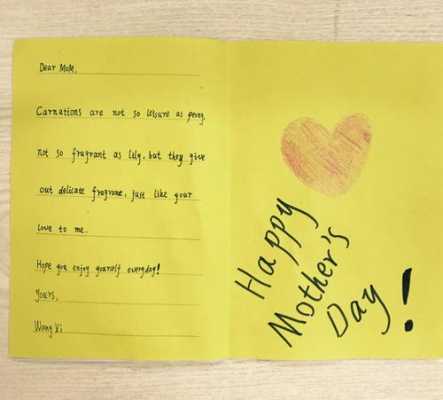 Dear Mom,
Carnations are not so leisure as peony,
not so fragrant as lily, but they give
out delicate fragrance, just like your
love to me.
Hope you enjoy yourself everyday!
Yours,
Wang Yi
Happy
Mother's
Day!